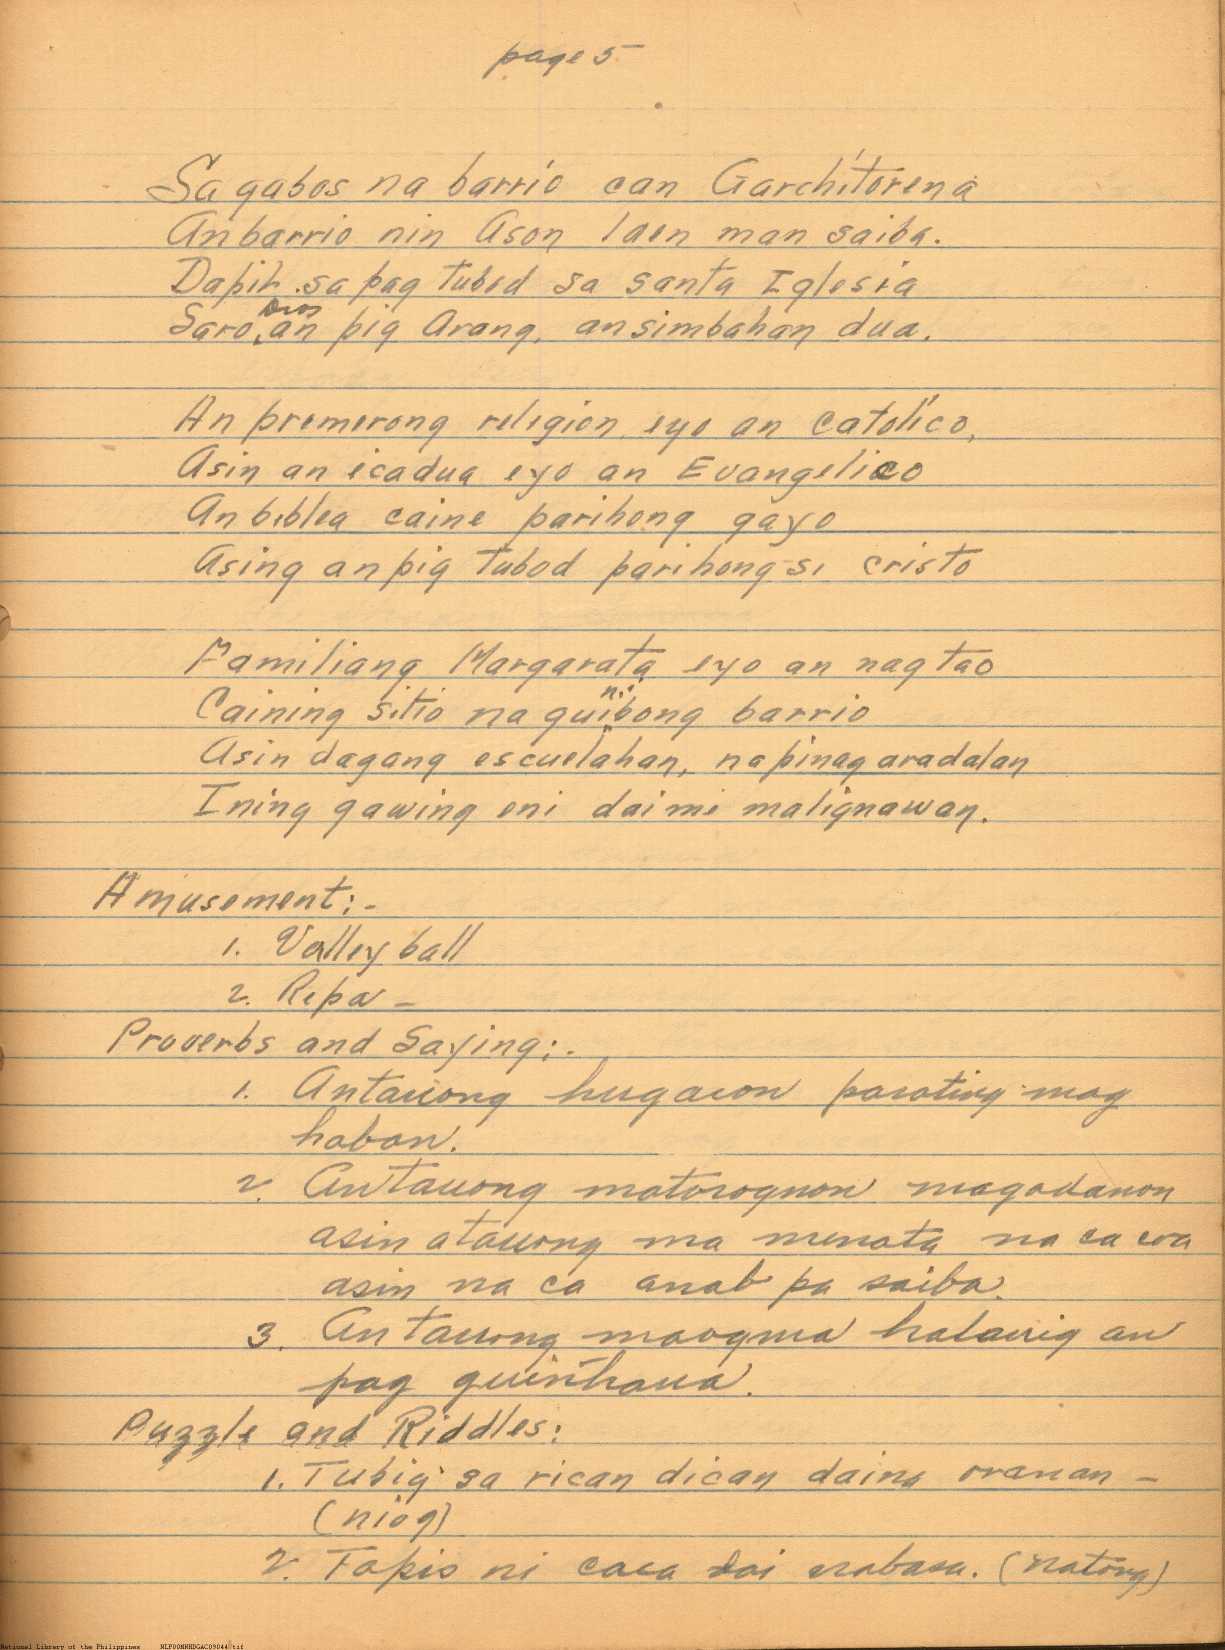 page 5
Sa gabos na barrio can Garchitorena
An barrio nin Ason laen man saiba.
Dapit sa pag tubod sa santa Iglesia
Dios
Saro, an pig Arang, an simbahan dua.
An premerong religion eyo an Catolico,
Asin an icadua eyo an Evangelico
An biblea caine parihong gayo
Asing an pig tubod parihong si cristo
Familiang Margarata eyo an nag tao
ni
Caining sitio na guibong barrio
Asin dagang escuelahan, na pinag aradalan
Ining gawing eni dai mi malignawan.
Amusement:-
1. Valley ball
2. Repa -
Proverbs and Saying:.
1. An tauong hugacon parating mag
haban.
2. An tauong matorognon magadanon
asin atauong ma menata na ca
asin na ca anab pa saiba.
3. An tauong maogma halauig an
pag guinhaua.
Puzzle and Riddles:
1. Tubig sa rican dican daing orauan -
(niog)
2. Tapis ni caca dai nabasa. (natong)
National Library of the Philippines NLP00MNHDGAC09044.tif